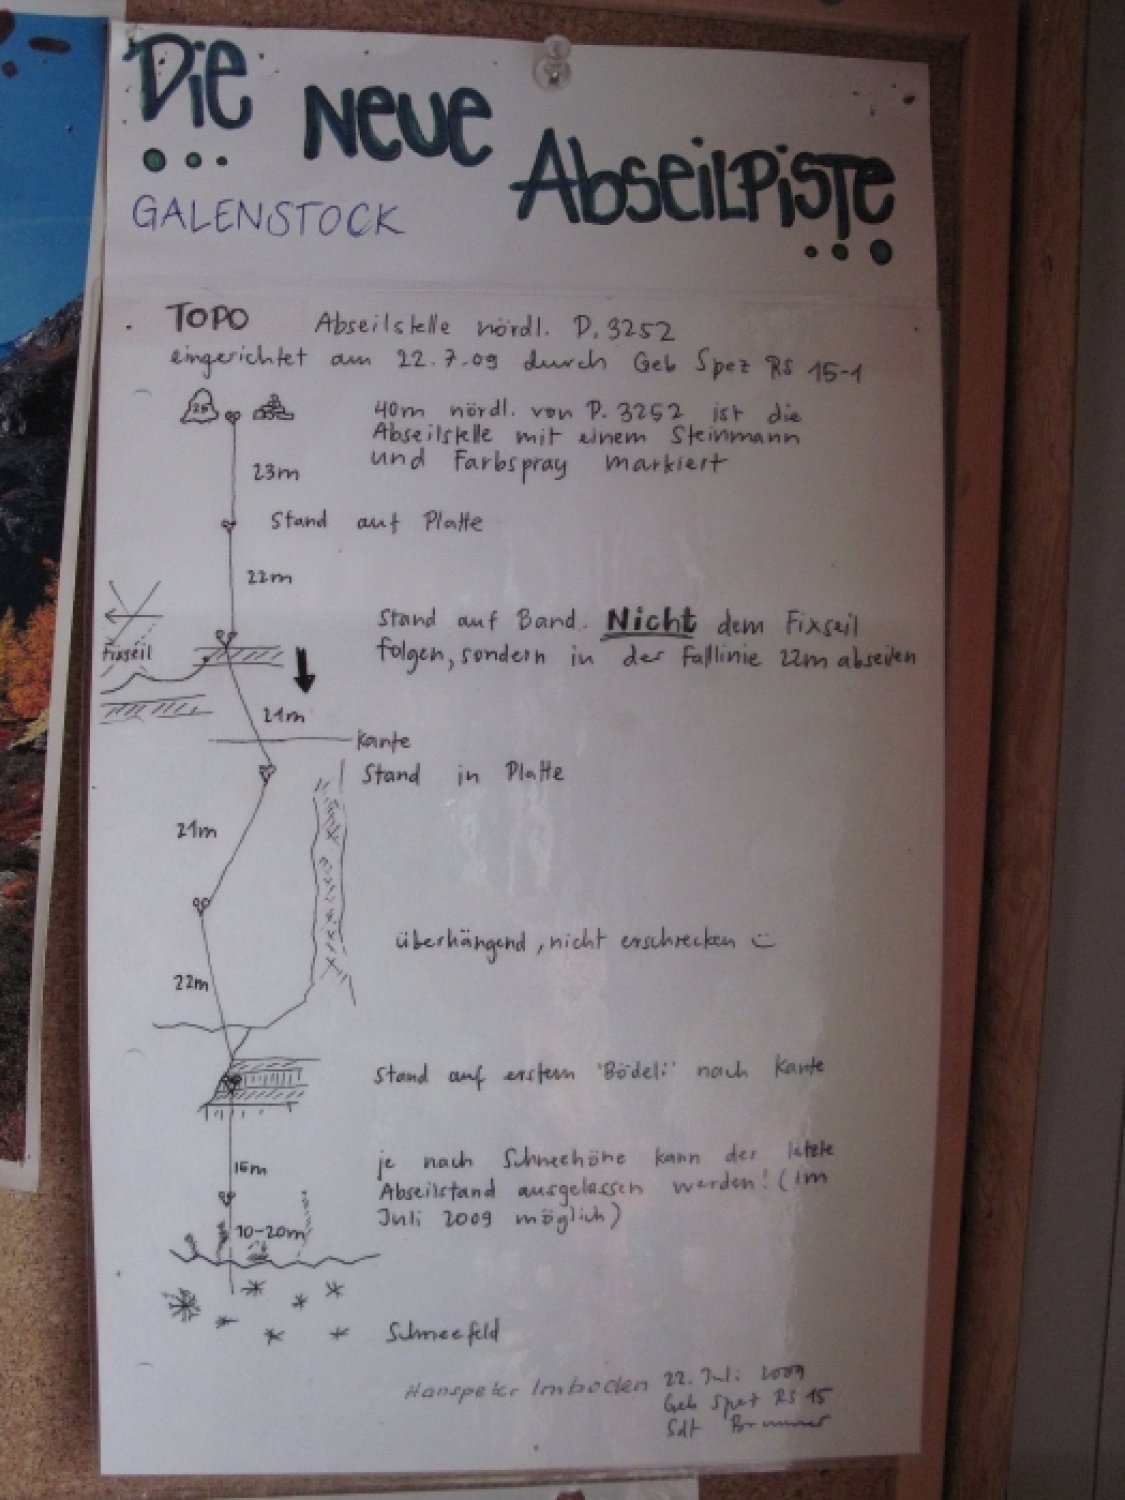 Die Neue Abseilpiste
GALENSTOCK
TOPO Abseilstelle nördl. P. 3252
eingerichtet am 22.7.09 durch Geb Spez RS 15-1
25
40m nördl. von P. 3252 ist die
Abseilstelle mit einem Steinmann
und Farbspray markiert
23m
Stand auf Platte
22m
Stand auf Band. Nicht dem Fixseil
folgen, sondern in der Fallinie 22m abseilen
Fixseil
21m
Kante
Stand in Platte
21m
überhängend, nicht erschrecken
22m
Stand auf erstem "Bödeli" nach Kante
15m
je nach Schneehöhe kann der letzte
Abseilstand ausgelassen werden! (Im
Juli 2009 möglich)
10-20m
Schneefeld
Hanspeter Imboden 22. Juli 2009
Geb Spez RS 15
Sdt